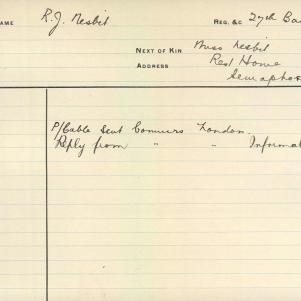 NAME R. J. Nesbit REG. &C 27th Ba
NEXT OF KIN Miss Nesbit
ADDRESS Rest Home
Semaphor
P/Cable sent Commrs London.
Reply from " " Informa